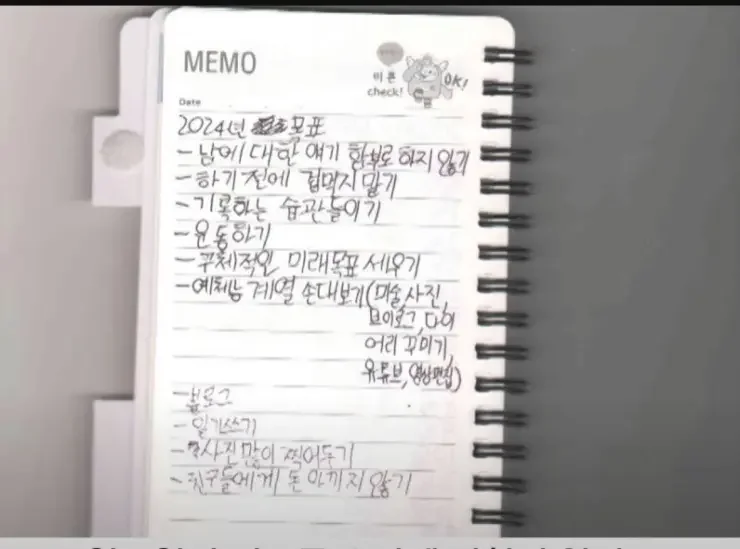 MEMO
비콘
check!
OK!
Date
2024년 목표
- 남에 대한 얘기 함부로 하지 않기
- 하기 전에 겁먹지 말기
- 기록하는 습관들이기
- 운동하기
- 구체적인 미래목표 세우기
- 예체능 계열 손대보기(미술,사진,
브이로그,다이
어리 꾸미기,
유튜브,영상편집)
- 블로그
- 일기쓰기
- 사진많이 찍어두기
- 친구들에게 돈 아끼지 않기